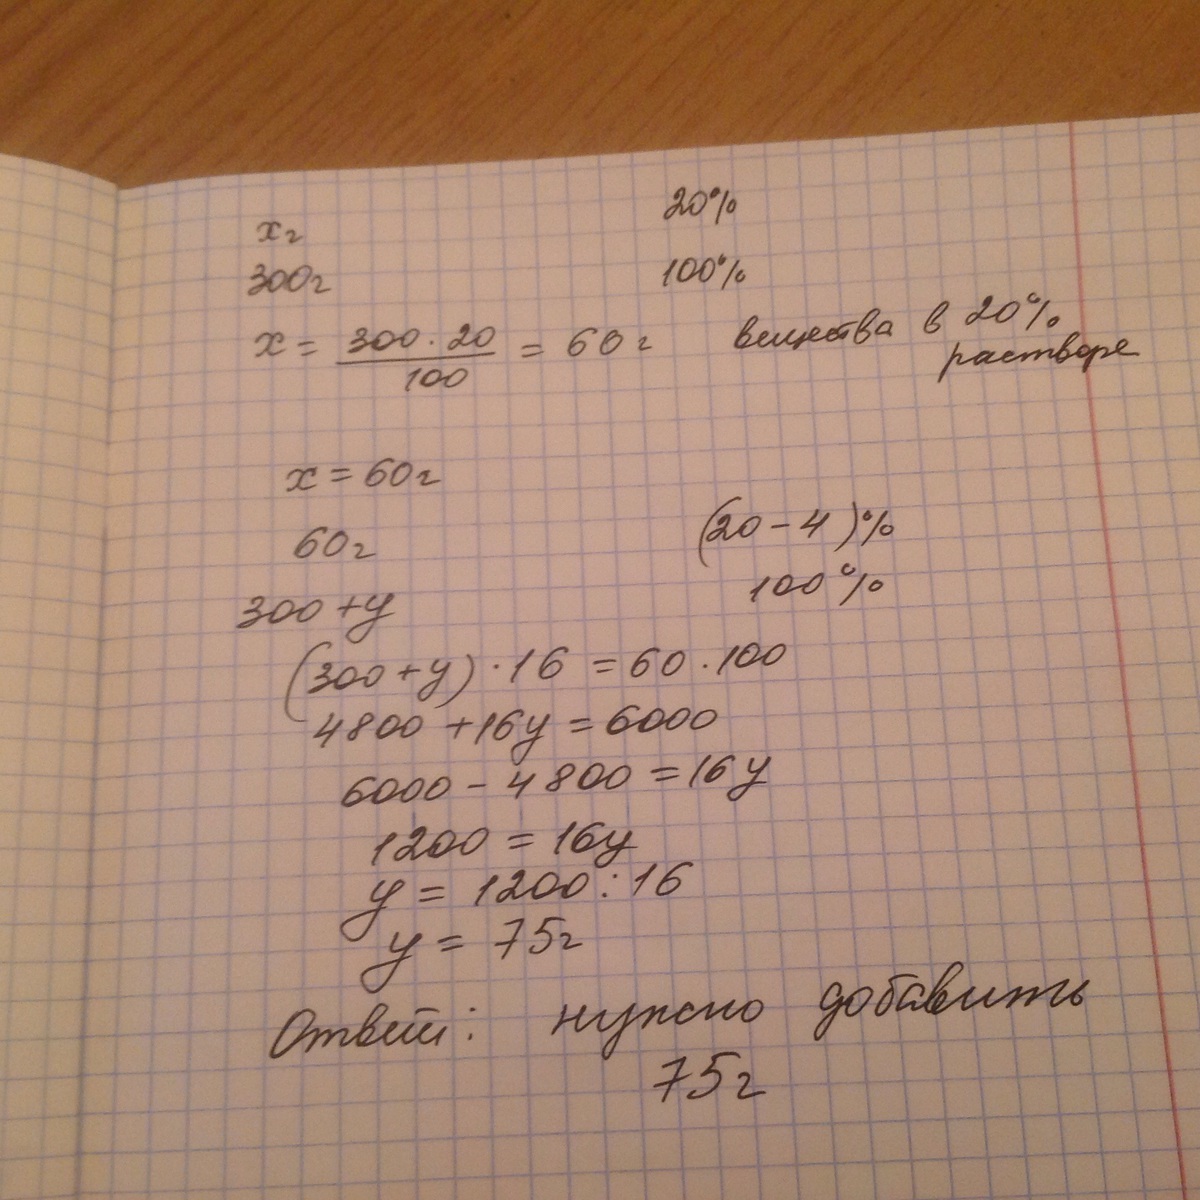 xг 20%
300г 100%
x = 300 · 20 / 100 = 60 г вещества в 20%
растворе
x = 60г
60г (20 - 4)%
300 + y 100%
(300 + y) · 16 = 60 · 100
4800 + 16y = 6000
6000 - 4800 = 16y
1200 = 16y
y = 1200 : 16
y = 75г
Ответ: нужно добавить
75г